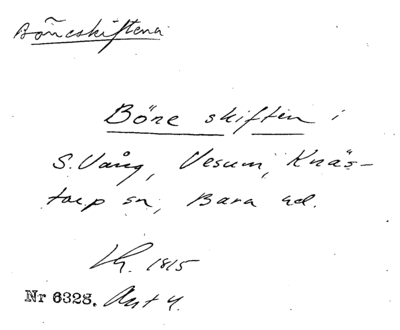 Böneskiftena
Böne skiften i
S. Vång, Vesum, Knäs-
torp sn, Bara hd.
Lh. 1815
Nr 6328. Akt 4.